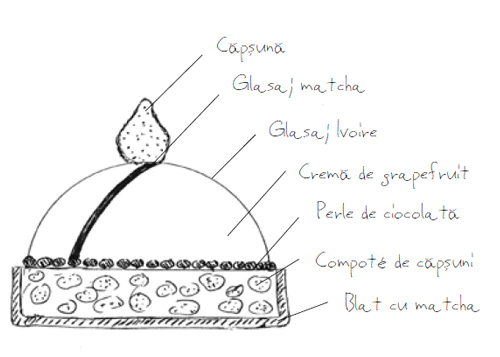 Căpșună
Glasaj matcha
Glasaj Ivoire
Cremă de grapefruit
Perle de ciocolată
Compoté de căpșuni
Blat cu matcha